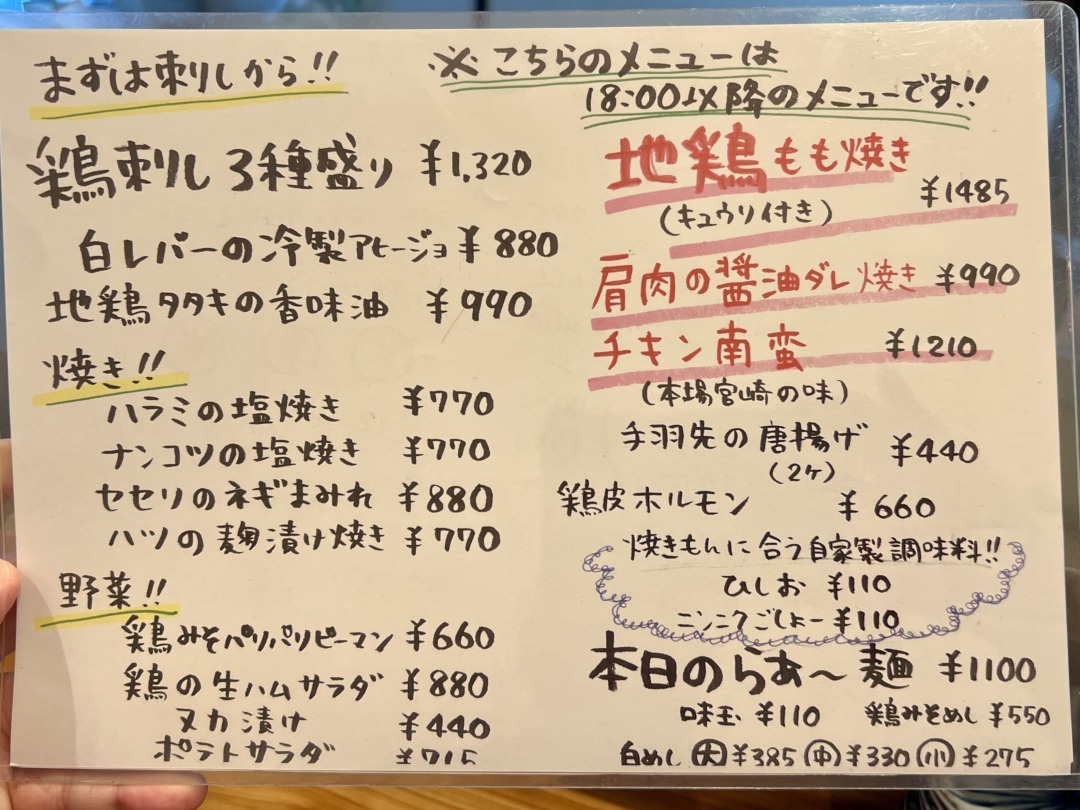 まずは刺しから!!
鶏刺し3種盛り ¥1,320
白レバーの冷製アヒージョ ¥880
地鶏タタキの香味油 ¥990
焼き!!
ハラミの塩焼き ¥770
ナンコツの塩焼き ¥770
セセリのネギまみれ ¥880
ハツの麹漬け焼き ¥770
野菜!!
鶏みそパリパリピーマン ¥660
鶏の生ハムサラダ ¥880
ヌカ漬け ¥440
ポテトサラダ ¥715
※こちらのメニューは
18:00以降のメニューです!!
地鶏もも焼き
(キュウリ付き) ¥1485
肩肉の醤油ダレ焼き ¥990
チキン南蛮 ¥1210
(本場宮崎の味)
手羽先の唐揚げ ¥440
(2ケ)
鶏皮ホルモン ¥660
焼きもんに合う自家製調味料!!
ひしお ¥110
ニンニクごしょー ¥110
本日のらぁ〜麺 ¥1100
味玉 ¥110 鶏みそめし ¥550
白めし 大 ¥385 中 ¥330 小 ¥275